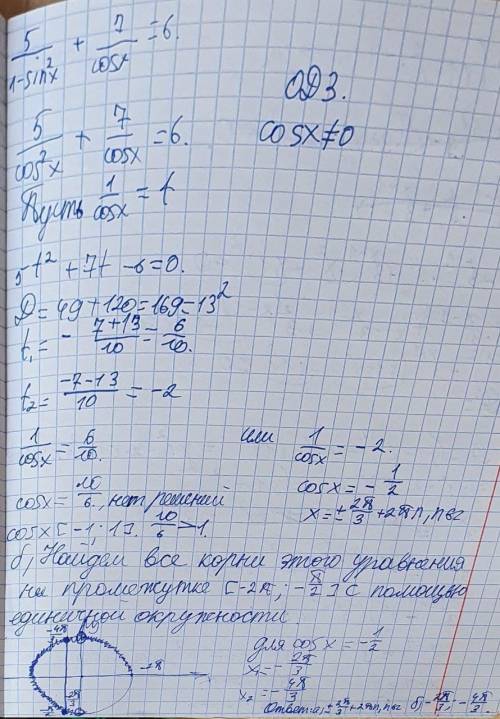 5/(1-sin²x) + 7/cosx = 6.
ОДЗ.
5/cos²x + 7/cosx = 6.
cosx≠0
Пусть 1/cosx = t
5t² + 7t - 6 = 0.
D = 49 + 120 = 169 = 13²
t₁ = -7+13/10 = 6/10.
t₂ = -7-13/10 = -2
1/cosx = 6/10. или 1/cosx = -2.
cosx = 10/6, нет решений
cosx = -1/2
cosx [-1; 1]. 10/6 > 1.
x = ± 2π/3 + 2πn, n∈z
б) Найдем все корни этого уравнения
на промежутке [-2π; -π/2] с помощью
единичной окружности.
для cosx = -1/2
x₁ = -2π/3
x₂ = -4π/3
-4π/3
-2π
Ответ: а) ± 2π/3 + 2πn, n∈z б) -2π/3; -4π/3.